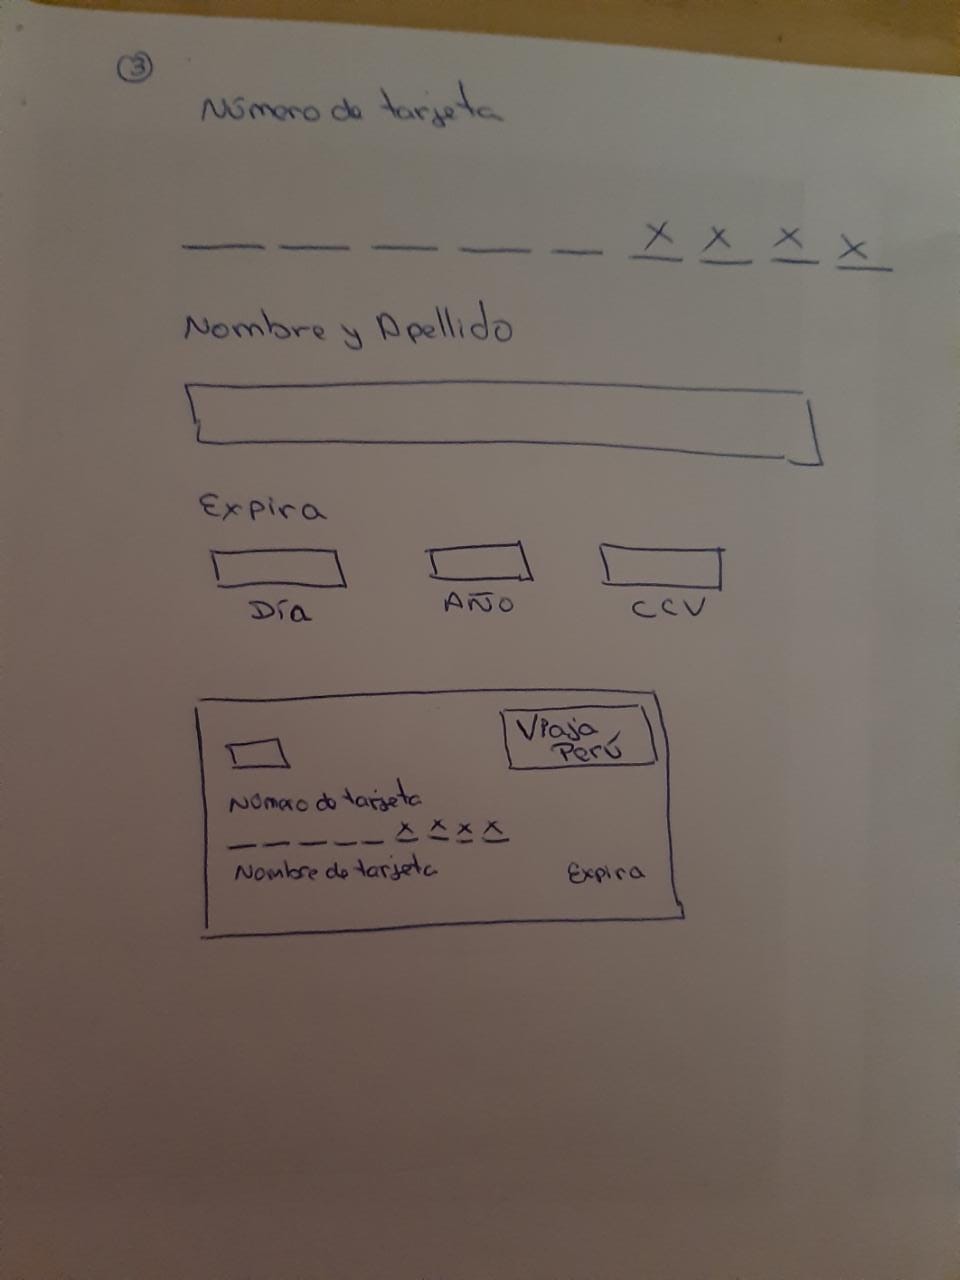 3
Número de tarjeta
_ _ _ _ _ X X X X
Nombre y Apellido
Expira
Día AÑO CCV
Viaja
Perú
Número de tarjeta
_ _ _ _ _ X X X X
Nombre de tarjeta Expira